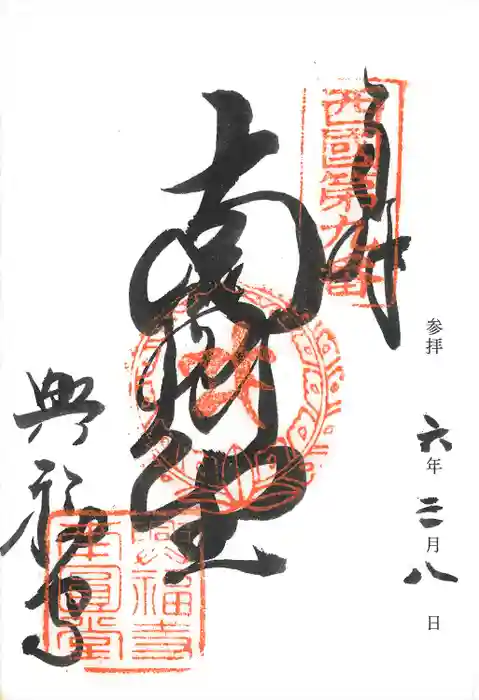 奉拝
西國第九番
参拝
六年三月八日
南圓堂
興福寺
興福寺
南圓堂